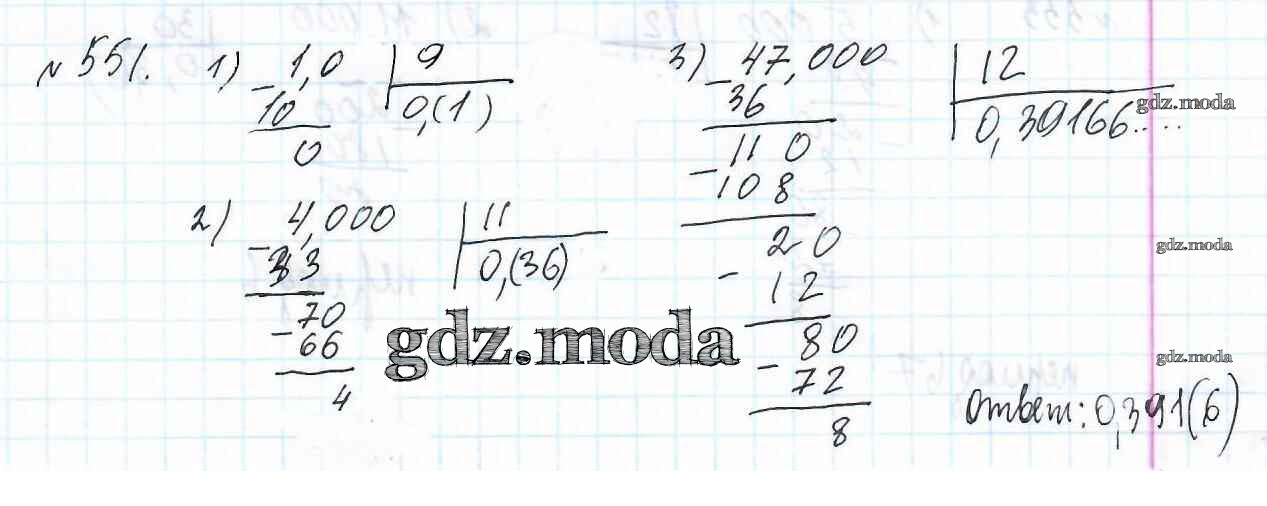 № 551. 1) 1,0 | 9
10 | 0,(1)
0
2) 4,000 | 11
33 | 0,(36)
70
66
4
3) 47,000 | 12
36 | 0,39166.....
110
108
20
12
80
72
8
Ответ: 0,391(6)
gdz.moda
gdz.moda
gdz.moda
gdz.moda